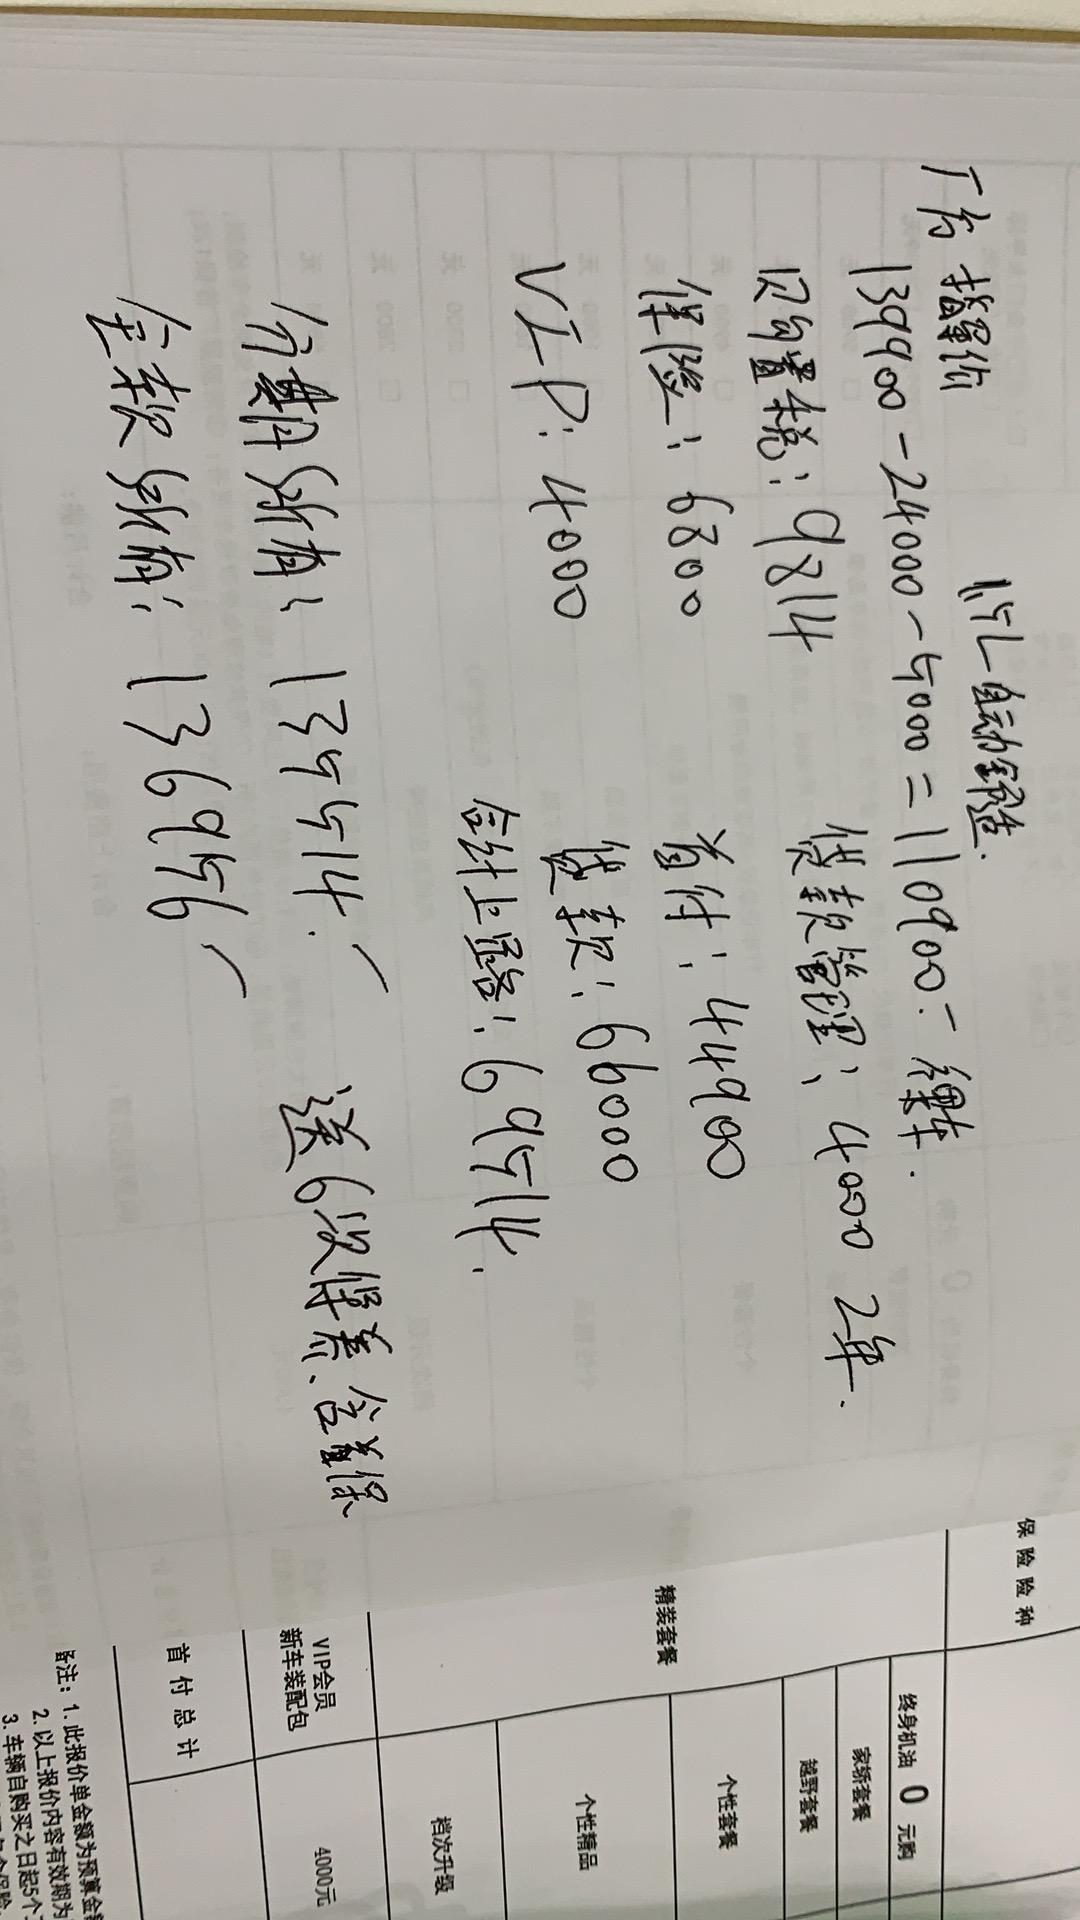 1.5L自动铸造.
厂方指导价
139900-24000-5000=110900.-裸车.
购置税:9814
贷款管理:4000 2年.
保险:6800
首付:44900
VIP:4000
贷款:66000
合计上路:69514.
分期所有:135514.
送6次保养.含首保
全款所有:136956
保险险种
精装套餐
终身机油 0 元购
家轿套餐
越野套餐
个性套餐
个性精品
档次升级
VIP会员
新车装配包
4000元
首付总计
备注:1.此报价单金额为预算金
2.以上报价内容有效期为
3.车辆自购买之日起5个